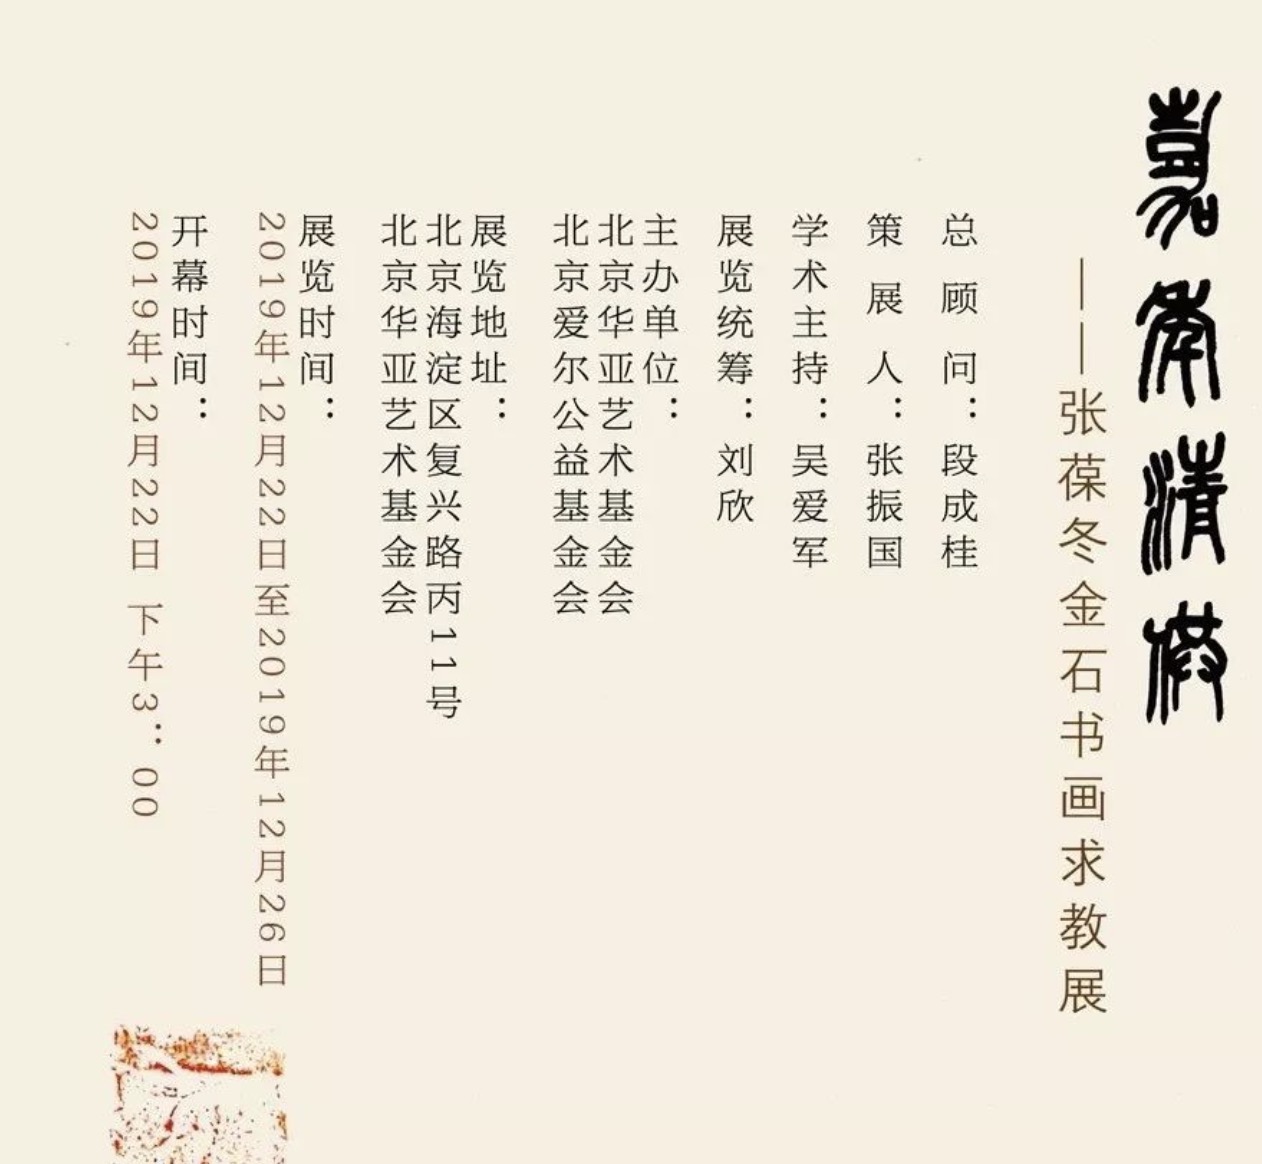 嘉年清供
——张葆冬金石书画求教展
总顾问：段成桂
策展人：张振国
学术主持：吴爱军
展览统筹：刘欣
主办单位：
北京华亚艺术基金会
北京爱尔公益基金会
展览地址：
北京海淀区复兴路丙11号
北京华亚艺术基金会
展览时间：
2019年12月22日至2019年12月26日
开幕时间：
2019年12月22日 下午3：00